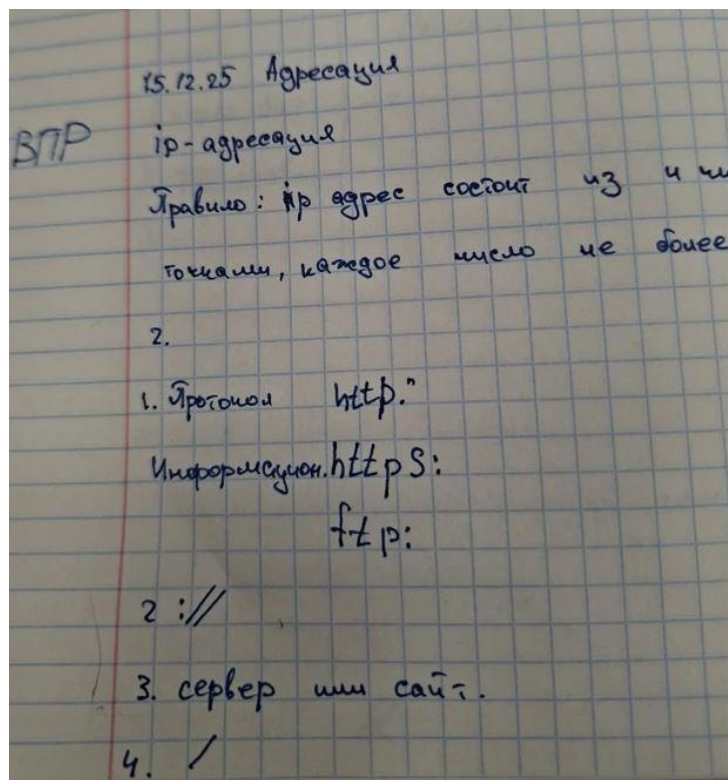 15.12.25 Адресация
ВПР ip-адресация
Правило: ip адрес состоит из 4
точками, каждое число не более
2.
1. Протокол http:
Информацион. https:
ftp:
2 ://
3. сервер или сайт.
4. /